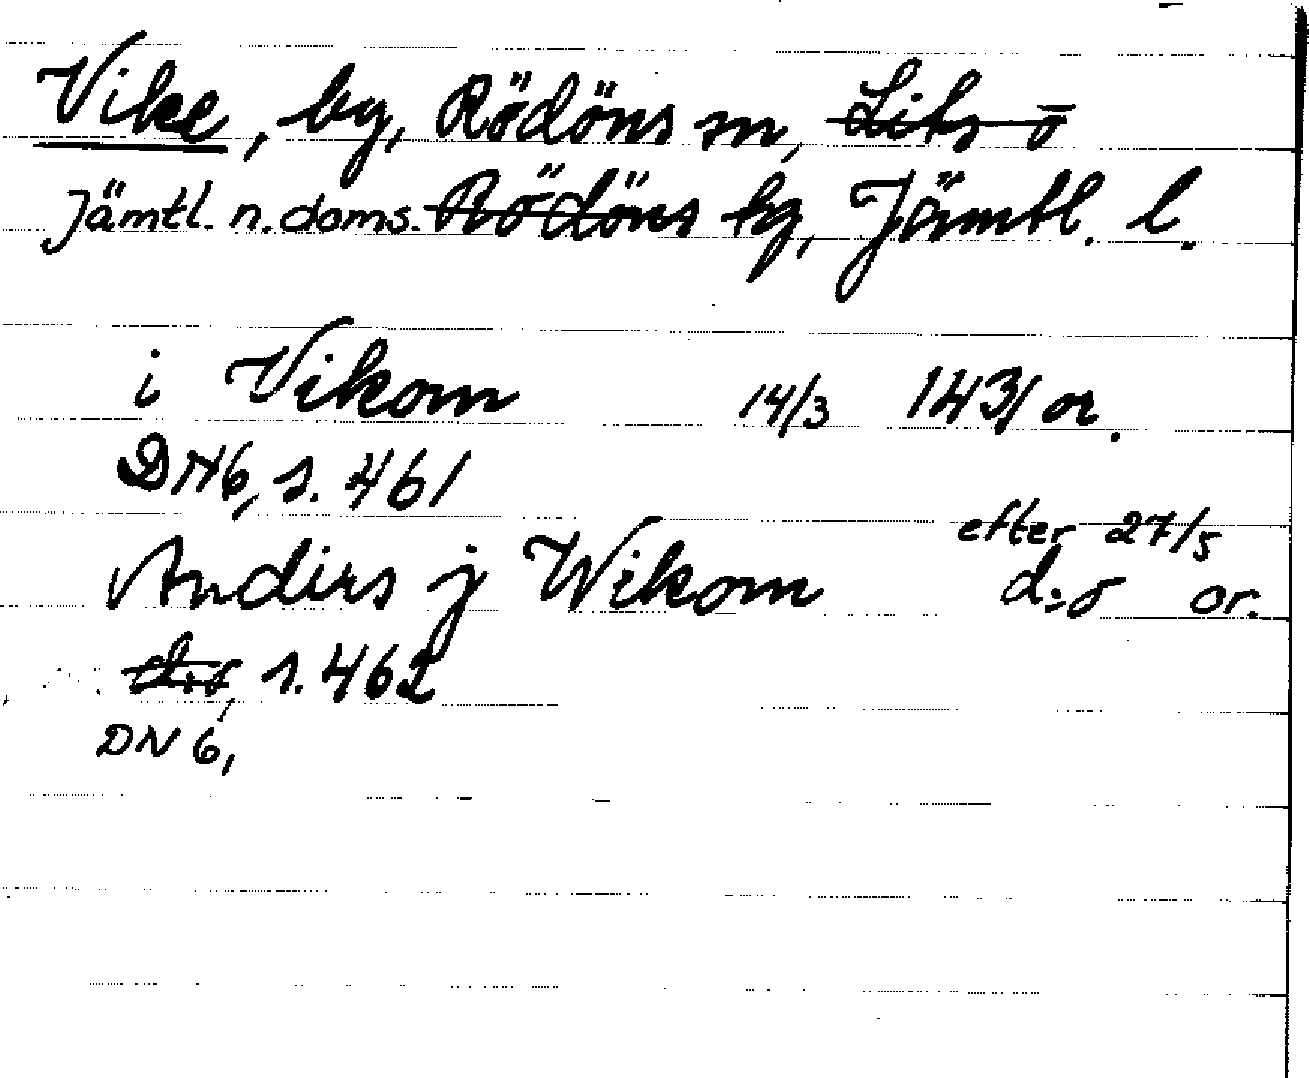 Vike, by, Rödöns sn, Liks o
Jämtl. n. doms. Rödöns tg, Jämtl. l.
i Vikom 14/3 1431 or.
DN6, s. 461
efter 27/5
Anders j Wikom d:o or.
d:o, s. 462
DN 6,